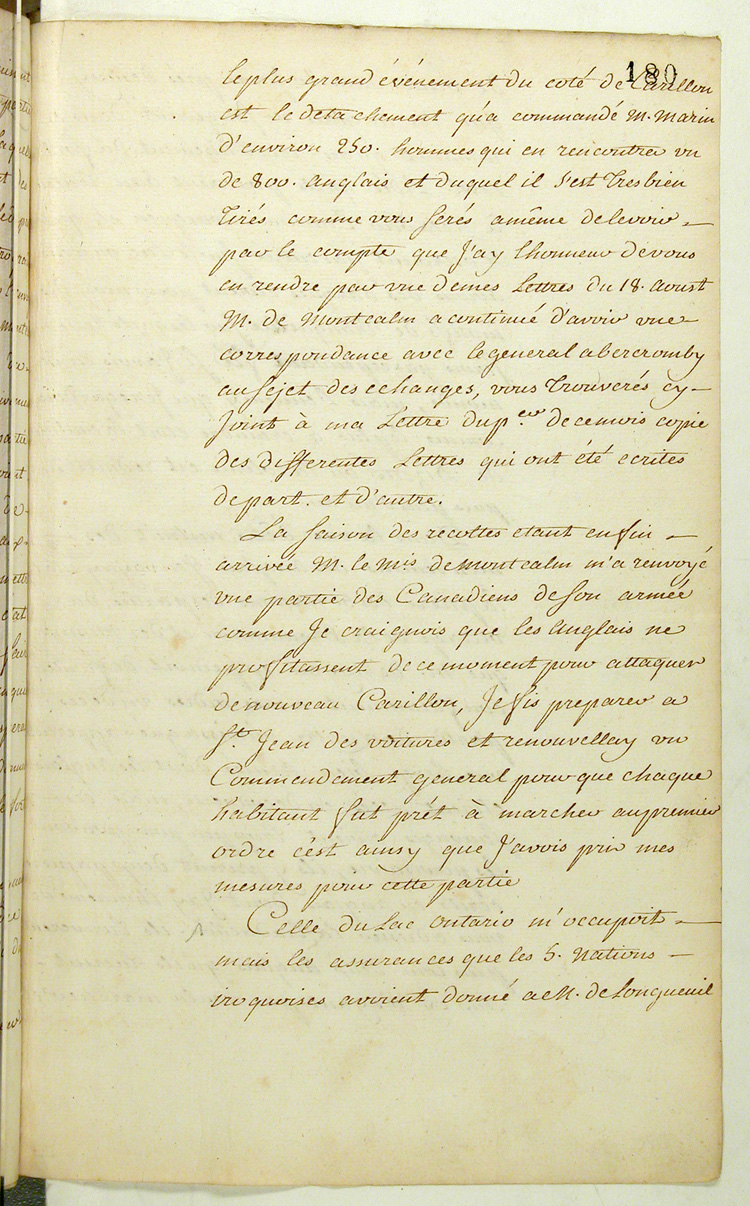 180
le plus grand événement du coté de Carillon
est le detachement qu'a commandé M. Marin
d'environ 250. hommes qui en rencontra un
de 800. anglais et duquel il s'est Tres bien
Tirés comme vous serés a même de le voir
par le compte que J'ay l'honneur de vous
en rendre par une de mes Lettres du 18. aoust
M. de Montcalm a continué d'avoir une
correspondance avec le general abercromby
au sejet des echanges, vous Trouverés cy-
Joint à ma Lettre du p.er de ce mois copie
des differentes Lettres qui ont été ecrites
de part. et d'autre.
La saison des recoltes etant enfin
arrivée M. le M.is de Montcalm m'a renvoyé
une partie des Canadiens de son armée
comme Je craignois que les anglais ne
profitassent de ce moment pour attaquer
de nouveau Carillon, Je fis preparer a
S.t Jean des voitures et renouvellay un
Commendement general pour que chaque
habitant fut prêt à marcher au premier
ordre c'est ainsy que J'avois pris mes
mesures pour cette partie
Celle du Lac ontario m'occupoit
mais les assurances que les 5. Nations
iroquoises avoient donné a M. de Longueuil